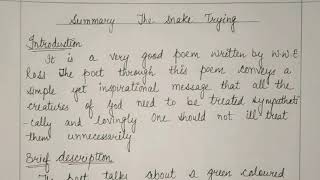 Summary The Snake Trying
Introduction
It is a very good poem written by W.W.E
Ross The poet through this poem conveys a
simple yet inspirational message that all the
creatures of God need to be treated sympatheti
-cally and lovingly One should not ill treat
them unnecessarily
Brief description
The poet talks about a green coloured